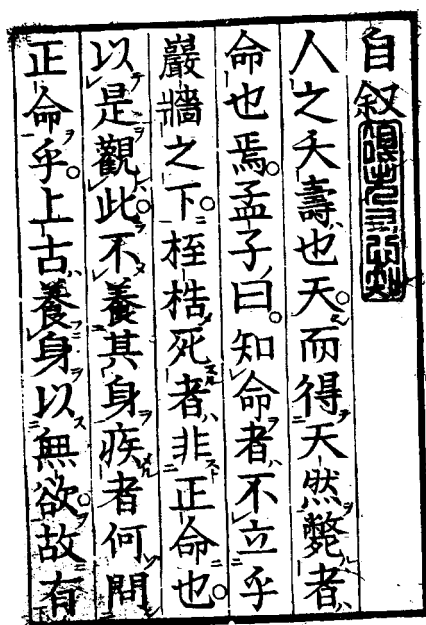 自叙
人之夭壽也天而得天然斃者
命也焉孟子曰知命者不立乎
巖牆之下桎梏死者非正命也
以是觀此不養其身疾者何問
正命乎上古養身以無欲故有